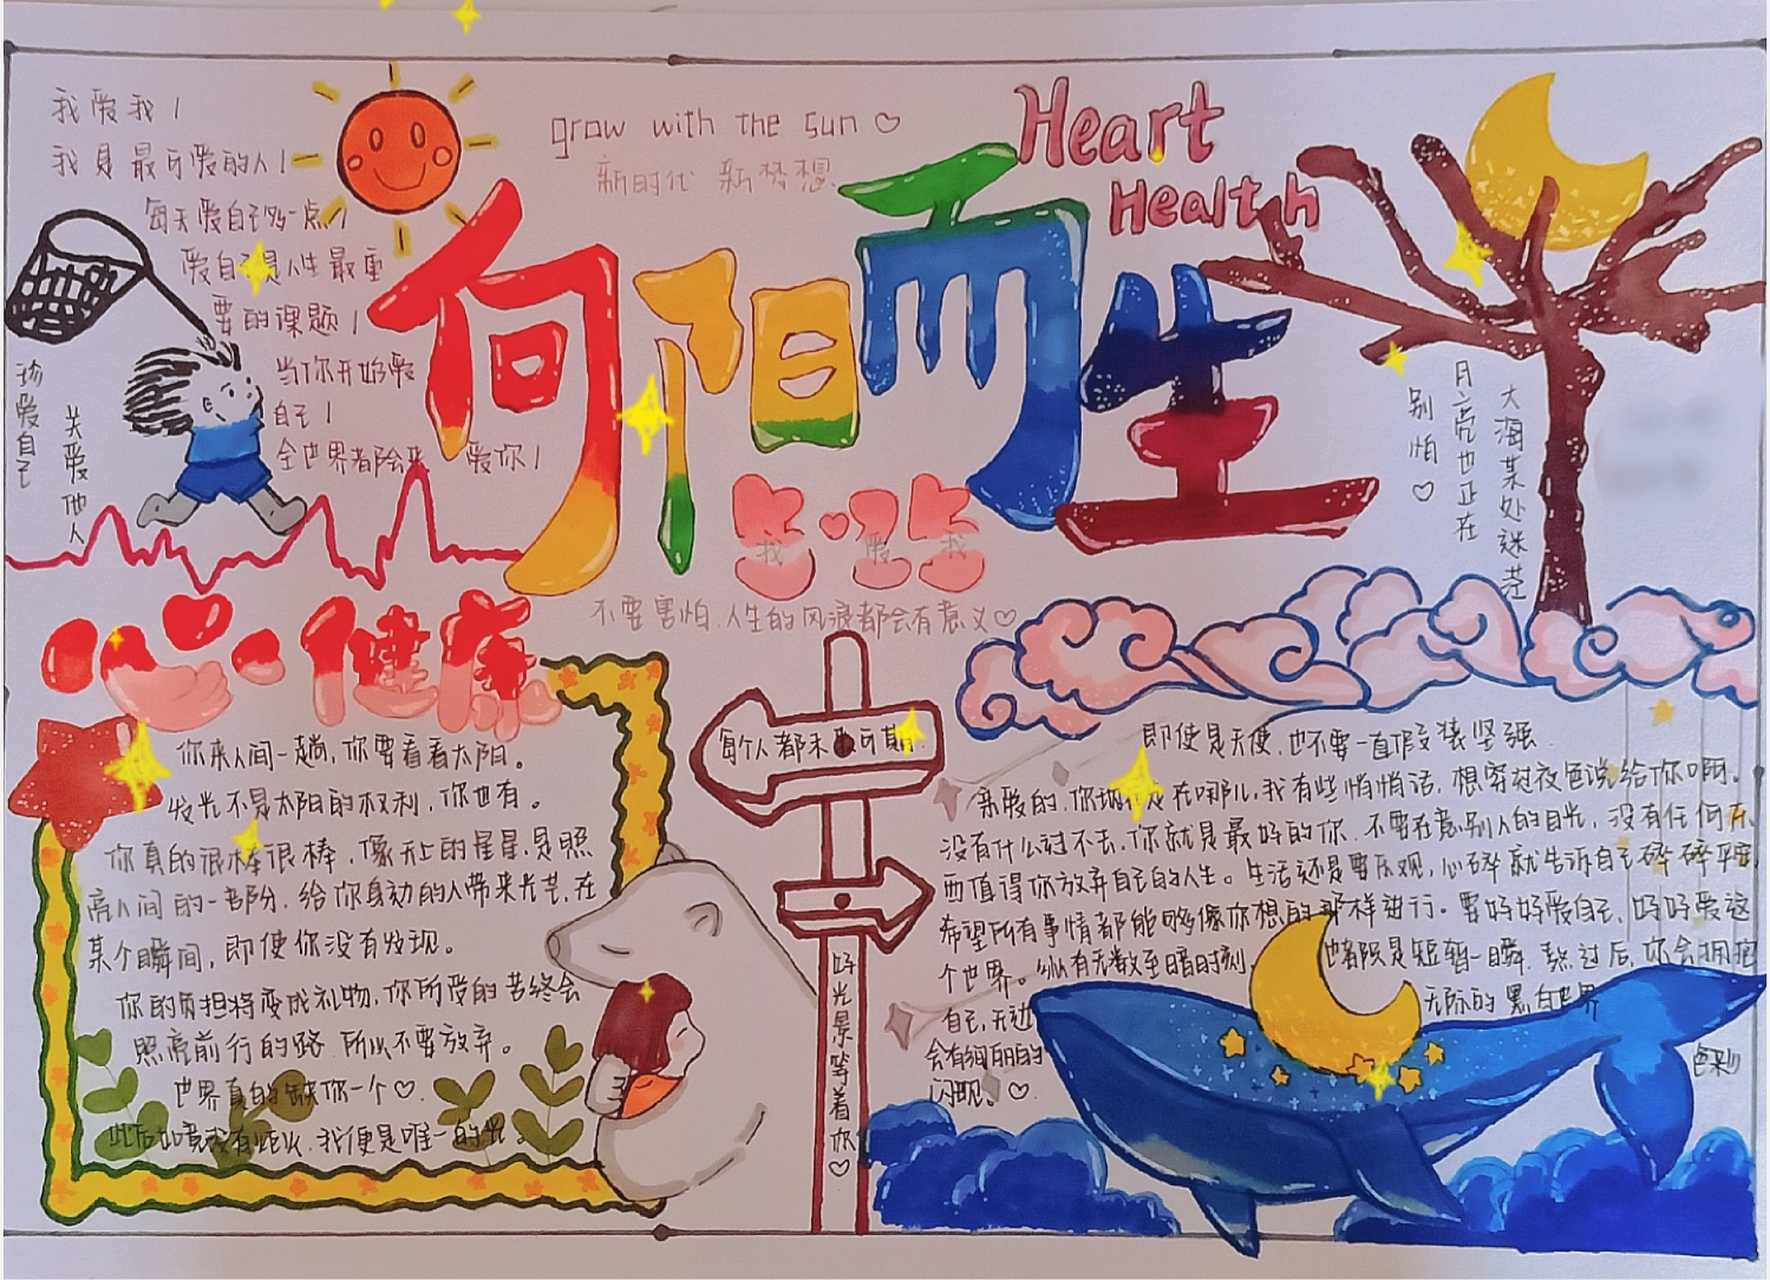 我爱我！
我是最可爱的人！
每天爱自己多一点！
爱自己是人生最重
要的课题！
当你开始爱
自己！
全世界都会来 爱你！
珍爱自己
关爱他人
grow with the sun
新时代 新梦想
Heart
Health
向阳而生
5·25
我 爱 我
不要害怕.人生的风浪都会有意义
大海某处迷茫
月亮也正在
别怕
心·健康
你来人间一趟，你要看看太阳。
发光不是太阳的权利，你也有。
你真的很棒很棒，像天上的星星，是照
亮人间的一部分.给你身边的人带来光芒，在
某个瞬间，即使你没有发现。
你的负担将变成礼物，你所受的苦终会
照亮前行的路.所以不要放弃。
世界真的缺你一个
此后如竟没有炬火.我便是唯一的光。
每个人都未来可期
好光景等着你
即使是天使，也不要一直假装坚强
亲爱的，你现在在哪儿，我有些悄悄话，想穿过夜色说给你啊。
没有什么过不去，你就是最好的你.不要在意别人的目光，没有任何东
西值得你放弃自己的人生。生活还是要乐观，心碎就告诉自己碎碎平安，
希望所有事情都能够像你想的那样进行。要好好爱自己，好好爱这
个世界。纵有无数至暗时刻 也都只是短暂一瞬.熬过后，你会拥抱
自己，无边 无际的黑白世界
会有绚丽的 色彩
闪现。